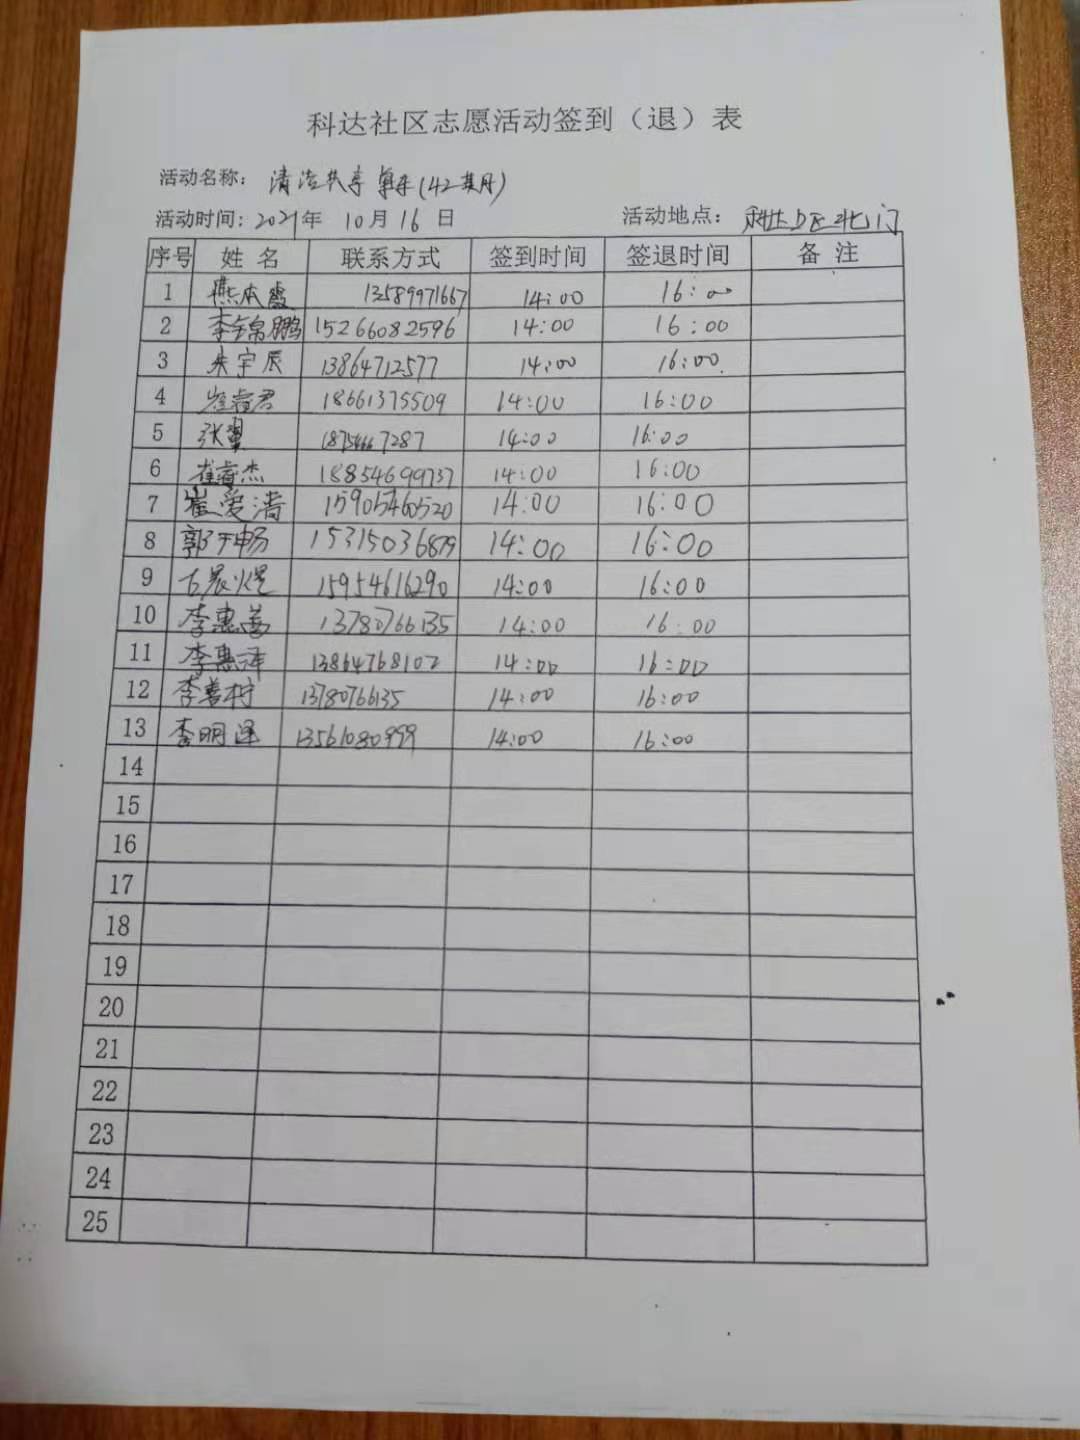 科达社区志愿活动签到（退）表
活动名称： 清洁共享单车(42
活动时间：2021年 10月16日 活动地点： 社区北门
序号 姓名 联系方式 签到时间 签退时间 备注
1 燕本霞 13589971667 14:00 16:00
2 李锦鹏 15266082596 14:00 16:00
3 朱宇辰 13864712577 14:00 16:00
4 崔睿君 18661375509 14:00 16:00
5 张翼 18754667287 14:00 16:00
6 崔睿杰 18854699737 14:00 16:00
7 崔爱清 15905460520 14:00 16:00
8 郭子畅 15315036879 14:00 16:00
9 古晨煜 15954616290 14:00 16:00
10 李惠善 13780766135 14:00 16:00
11 李惠泽 13864768102 14:00 16:00
12 李善柠 13780766135 14:00 16:00
13 李明运 13561080999 14:00 16:00
14
15
16
17
18
19
20
21
22
23
24
25